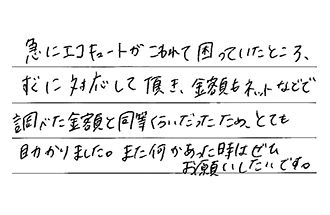 急にエコキュートがこわれて困っていたところ、
すぐに対応して頂き、金額もネットなどで
調べた金額と同等くらいだったため、とても
助かりました。また何かあった時はぜひ
お願いしたいです。